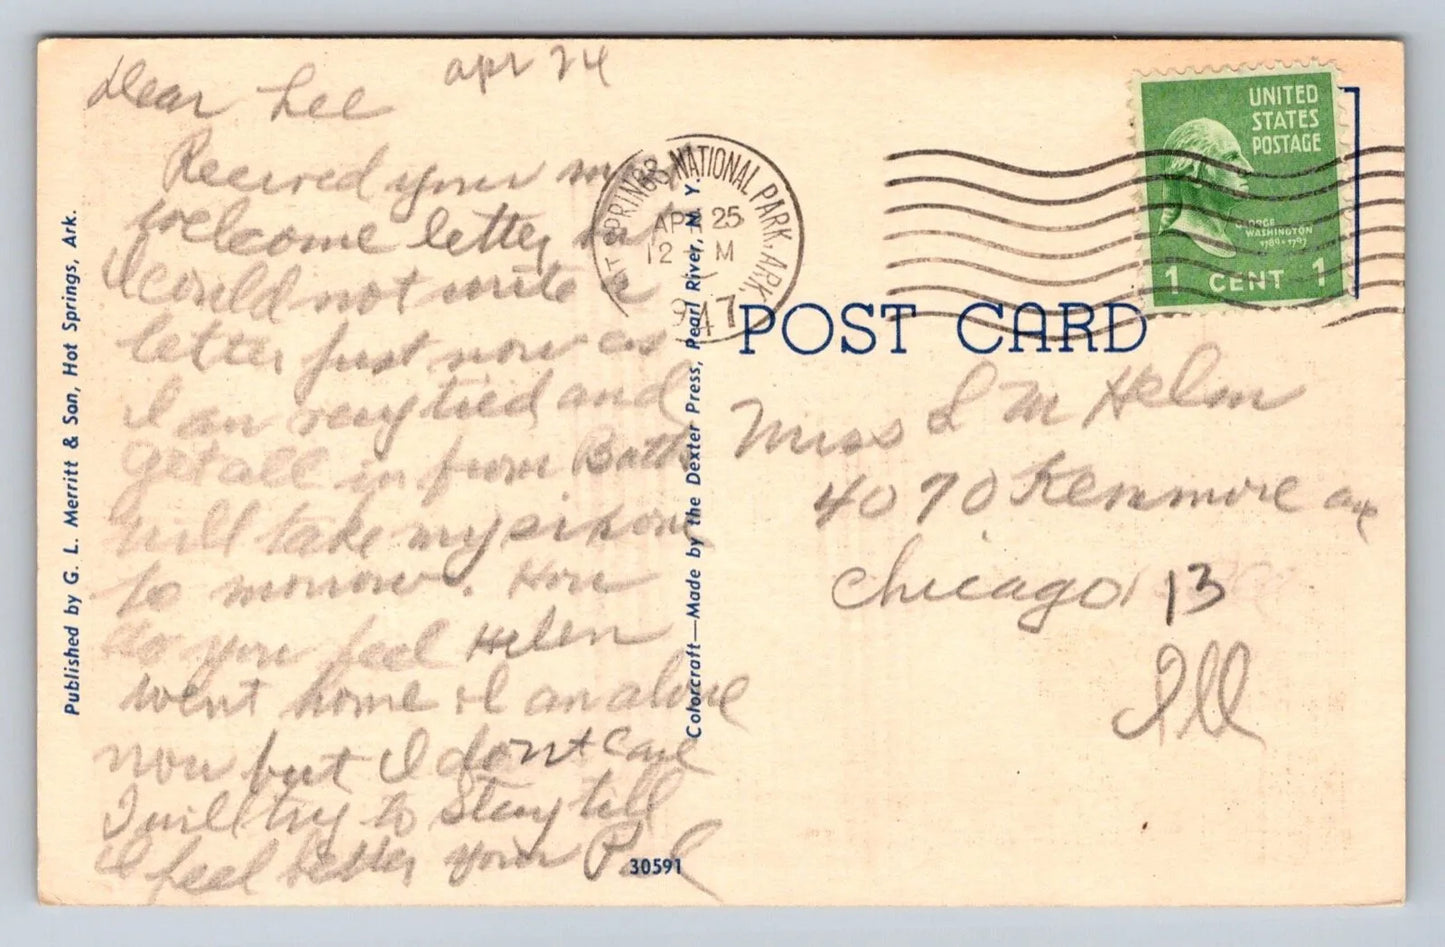 apr 24
Dear Lee
Received your most
welcome letter but
I could not write a
letter just now as
I am very tired and
Get all in from Baths
will take my
to morrow. How
do you feel Helen
went home & I am alone
now but I dont care
I will try to stay till
I feel better your Pal
Published by G. L. Merritt & Son, Hot Springs, Ark.
Colorcraft—Made by the Dexter Press, Pearl River, N. Y.
30591
HOT SPRINGS NATIONAL PARK. ARK.
APR 25
12 M
1947
UNITED
STATES
POSTAGE
GEORGE
WASHINGTON
1789-1797
1 CENT 1
POST CARD
Miss L M Helm
4070 Kenmore ave
Chicago 13
Ill